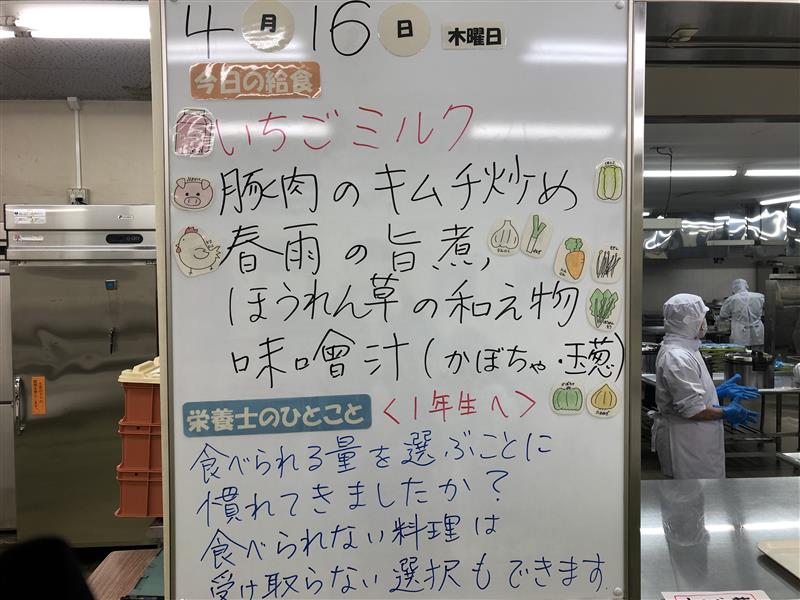 4月16日 木曜日
今日の給食
いちごミルク
豚肉のキムチ炒め
春雨の旨煮
ほうれん草の和え物
味噌汁(かぼちゃ・玉葱)
栄養士のひとこと <1年生へ>
食べられる量を選ぶことに
慣れてきましたか?
食べられない料理は
受け取らない選択もできます